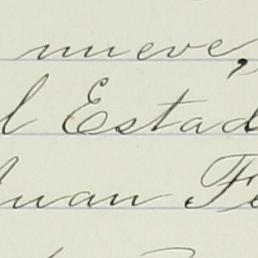 nueve,
l Estad
Juan Fe